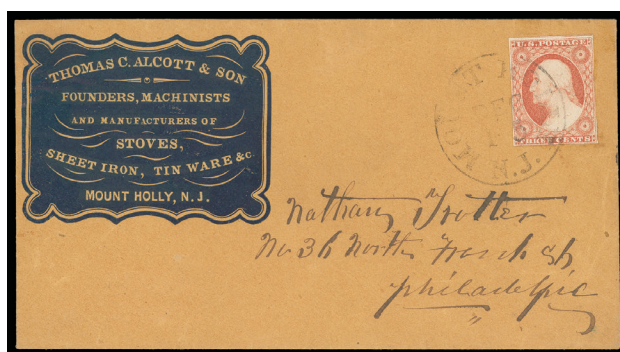 THOMAS C. ALCOTT & SON
FOUNDERS, MACHINISTS
AND MANUFACTURERS OF
STOVES,
SHEET IRON, TIN WARE &c.
MOUNT HOLLY, N. J.
U.S. POSTAGE
THREE CENTS
MOUNT
N.J.
Nathan Trotter
No 36 North Front St
Philadelphia